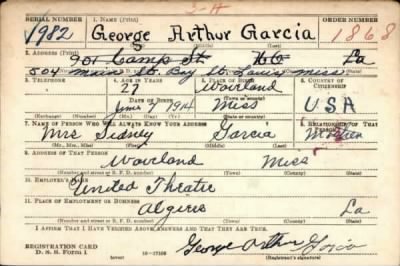 2-A
SERIAL NUMBER 1. NAME (Print) ORDER NUMBER
1982 George Arthur Garcia 1868
2. ADDRESS (Print)
901 Camp St. N.O. La
504 Main St. Bay St. Louis Miss
3. TELEPHONE 4. AGE IN YEARS 5. PLACE OF BIRTH 6. COUNTRY OF CITIZENSHIP
27 Waveland
DATE OF BIRTH
June 7 1914 Miss U.S.A
7. NAME OF PERSON WHO WILL ALWAYS KNOW YOUR ADDRESS 8. RELATIONSHIP OF THAT PERSON
Mrs Sidney Garcia
(Mr., Mrs., Miss) (First) (Middle) (Last)
9. ADDRESS OF THAT PERSON
Waveland Miss
(Number and street or R. F. D. number) (Town) (County) (State)
10. EMPLOYER'S NAME
United Theatre
11. PLACE OF EMPLOYMENT OR BUSINESS
Algiers La
(Number and street or R. F. D. number) (Town) (County) (State)
I AFFIRM THAT I HAVE VERIFIED ABOVE ANSWERS AND THAT THEY ARE TRUE.
REGISTRATION CARD George Arthur Garcia
D. S. S. Form 1 (over) (Registrant's signature)